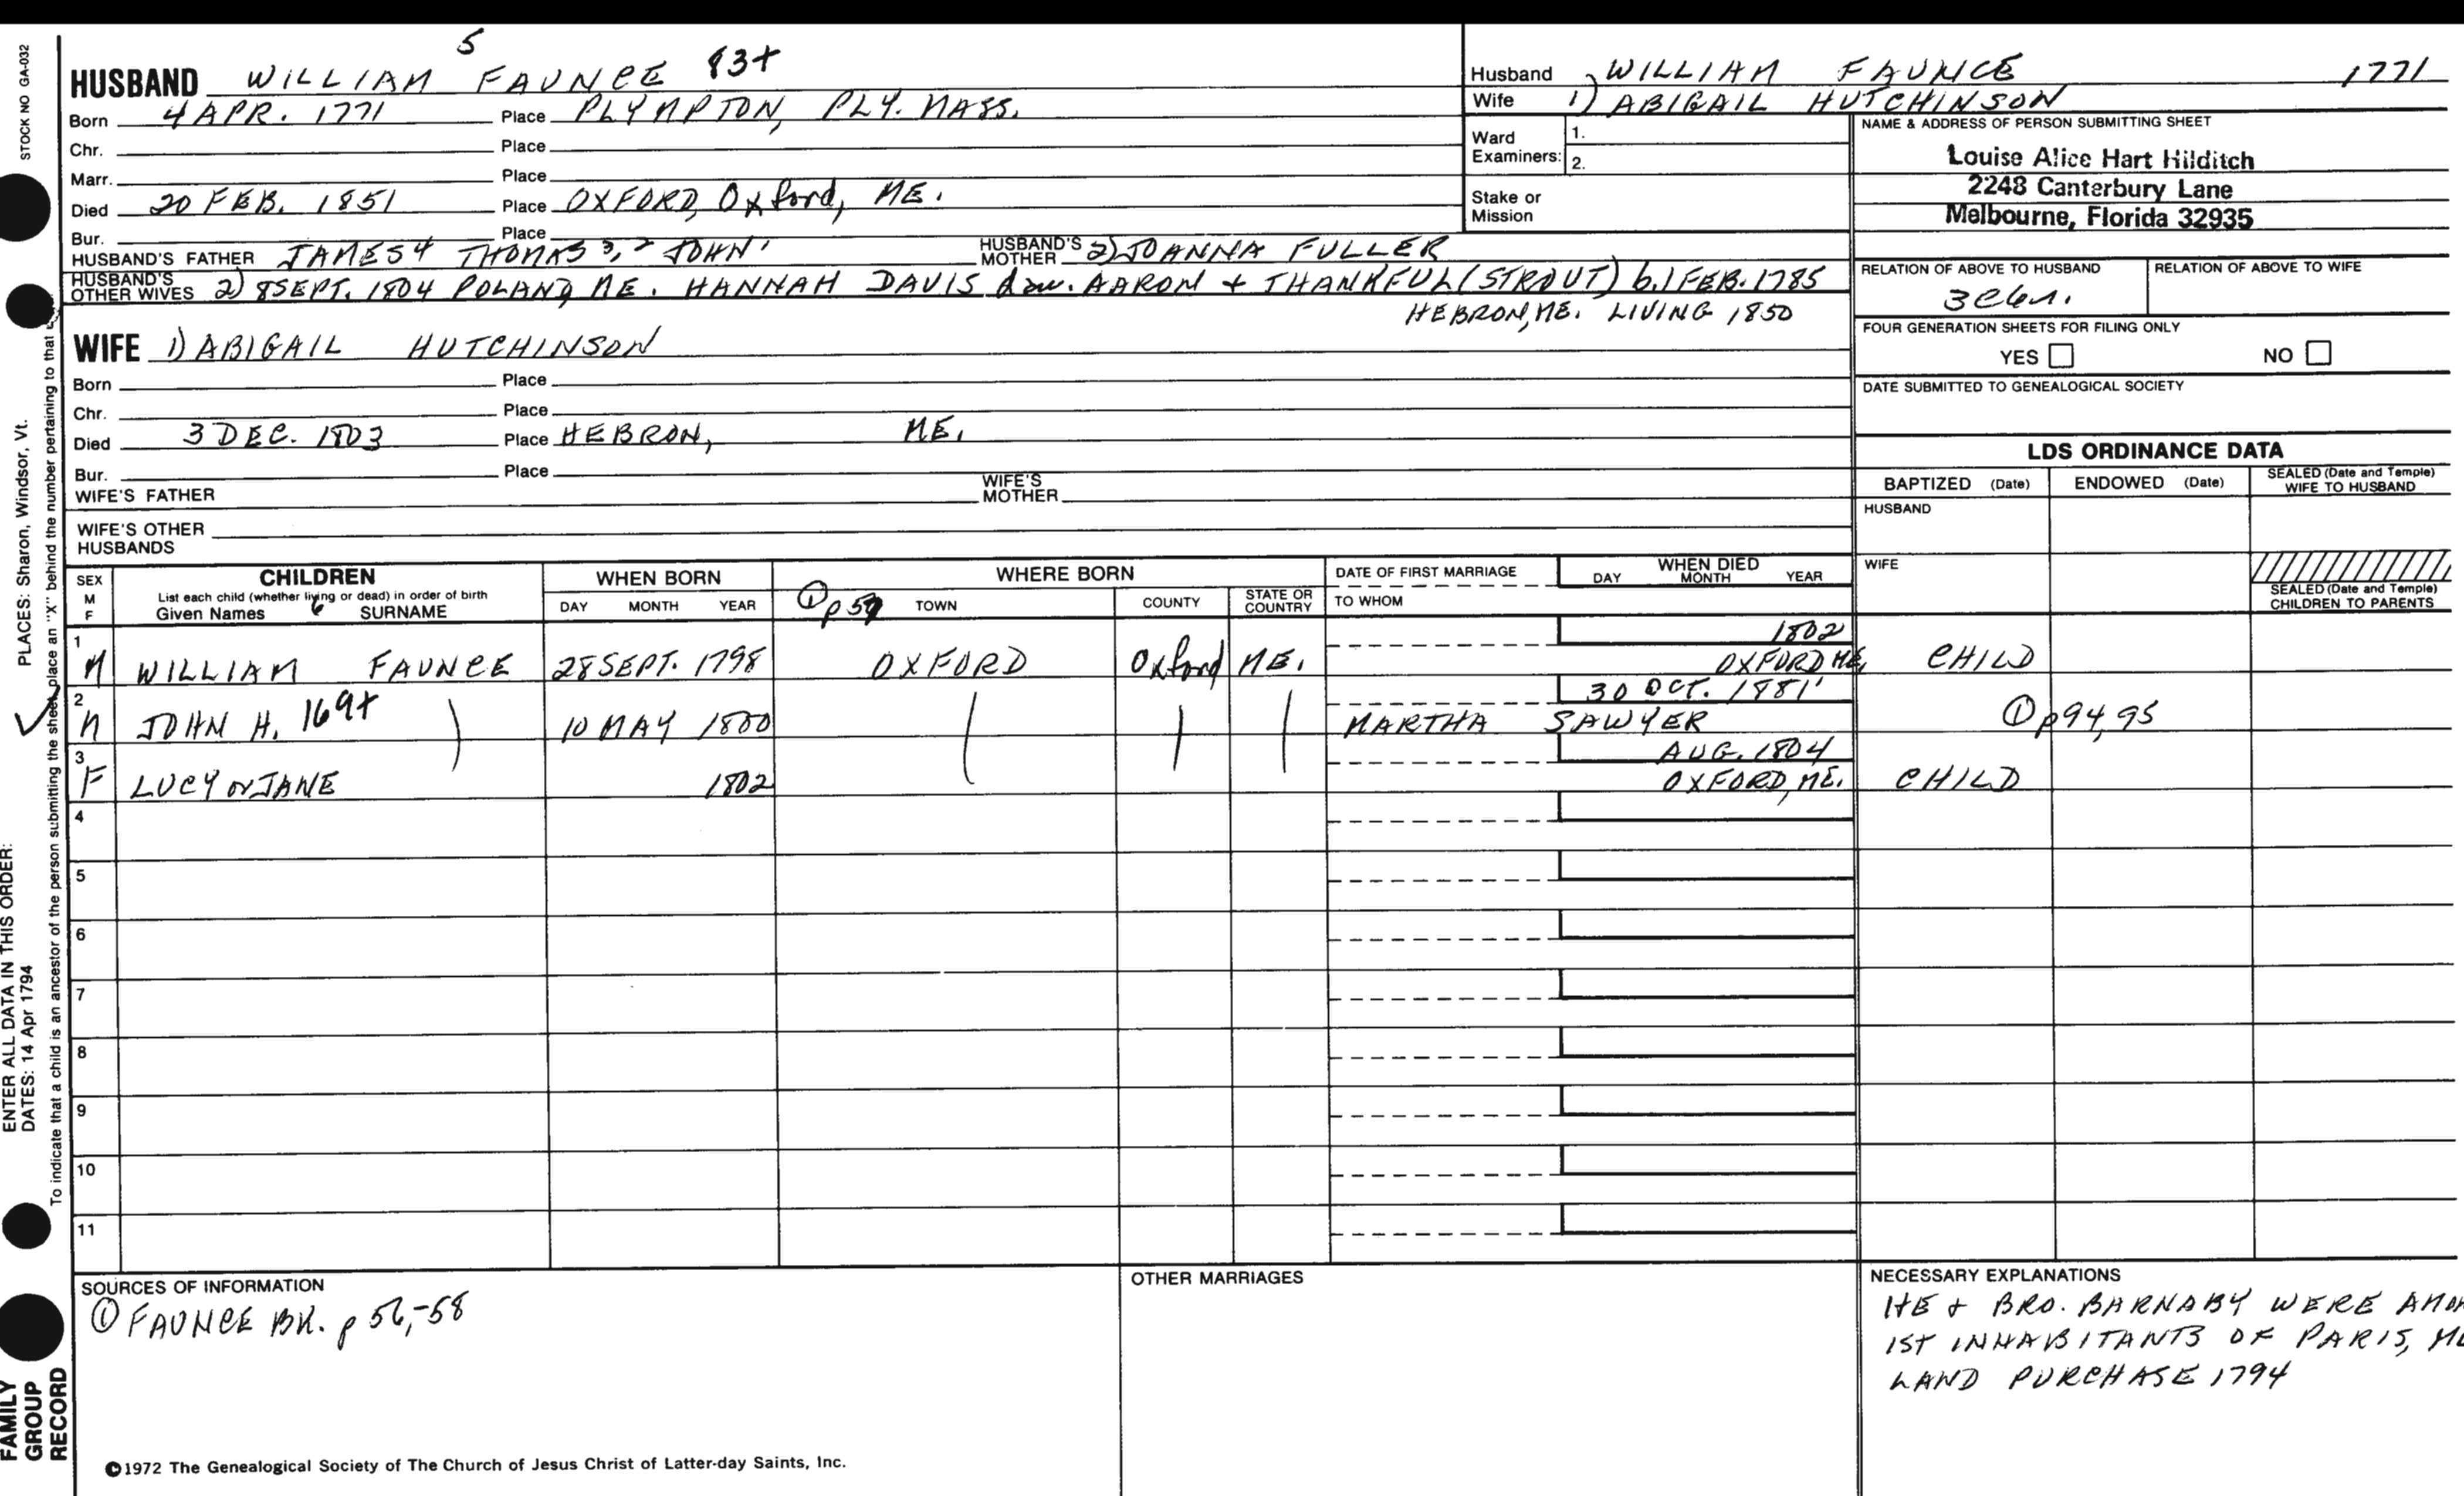 STOCK NO GA-032
HUSBAND WILLIAM 5 FAUNCE 83+
Born 4 APR. 1771 Place PLYMPTON, PLY. MASS.
Chr. Place
Marr. Place
Died 20 FEB. 1851 Place OXFORD, Oxford, ME.
Bur. Place
HUSBAND'S FATHER JAMES4 THOMAS 3, 2 JOHN' HUSBAND'S MOTHER 2) JOANNA FULLER
HUSBAND'S OTHER WIVES 2) 8 SEPT. 1804 POLAND, ME. HANNAH DAVIS daw. AARON + THANKFUL (STROUT) b. 1 FEB. 1785
HEBRON, ME. LIVING 1850
WIFE 1) ABIGAIL HUTCHINSON
Born Place
Chr. Place
Died 3 DEC. 1803 Place HEBRON, ME.
Bur. Place
WIFE'S FATHER WIFE'S MOTHER
WIFE'S OTHER HUSBANDS
Husband WILLIAM FAUNCE 1771
Wife 1) ABIGAIL HUTCHINSON
Ward Examiners: 1.
2.
Stake or Mission
NAME & ADDRESS OF PERSON SUBMITTING SHEET
Louise Alice Hart Hilditch
2248 Canterbury Lane
Melbourne, Florida 32935
RELATION OF ABOVE TO HUSBAND RELATION OF ABOVE TO WIFE
FOUR GENERATION SHEETS FOR FILING ONLY
YES NO
DATE SUBMITTED TO GENEALOGICAL SOCIETY
LDS ORDINANCE DATA
BAPTIZED (Date) ENDOWED (Date) SEALED (Date and Temple) WIFE TO HUSBAND
HUSBAND
WIFE
SEALED (Date and Temple) CHILDREN TO PARENTS
SEX M F
CHILDREN
List each child (whether living or dead) in order of birth
Given Names 6 SURNAME
WHEN BORN
DAY MONTH YEAR
WHERE BORN
① p 59 TOWN COUNTY STATE OR COUNTRY
DATE OF FIRST MARRIAGE
TO WHOM
WHEN DIED
DAY MONTH YEAR
1 M WILLIAM FAUNCE 28 SEPT. 1798 OXFORD Oxford ME. 1802
OXFORD ME. CHILD
2 M JOHN H. 169+ 10 MAY 1800 MARTHA SAWYER 30 OCT. 1881 ① p 94, 95
3 F LUCY or JANE 1802 AUG. 1804
OXFORD, ME. CHILD
4
5
6
7
8
9
10
11
SOURCES OF INFORMATION
① FAUNCE BK. p 56,-58
OTHER MARRIAGES
NECESSARY EXPLANATIONS
HE + BRO. BARNABY WERE
1ST INHABITANTS OF PARIS,
LAND PURCHASE 1794
©1972 The Genealogical Society of The Church of Jesus Christ of Latter-day Saints, Inc.
FAMILY GROUP RECORD
ENTER ALL DATA IN THIS ORDER:
DATES: 14 Apr 1794
PLACES: Sharon, Windsor, Vt.
To indicate that a child is an ancestor of the person submitting the sheet, place an "X" behind the number pertaining to that